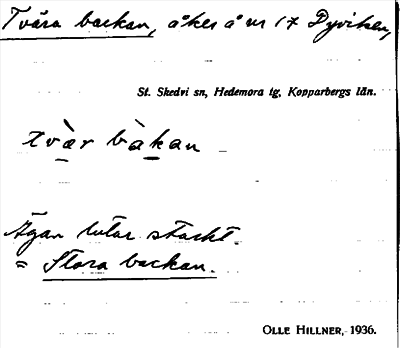 Tvära backan, åker å nr 17 Dyviken,
St. Skedvi sn, Hedemora tg, Kopparbergs län.
tvàr bàkan
Ägan lutar starkt.
= Stora backan.
OLLE HILLNER, 1936.